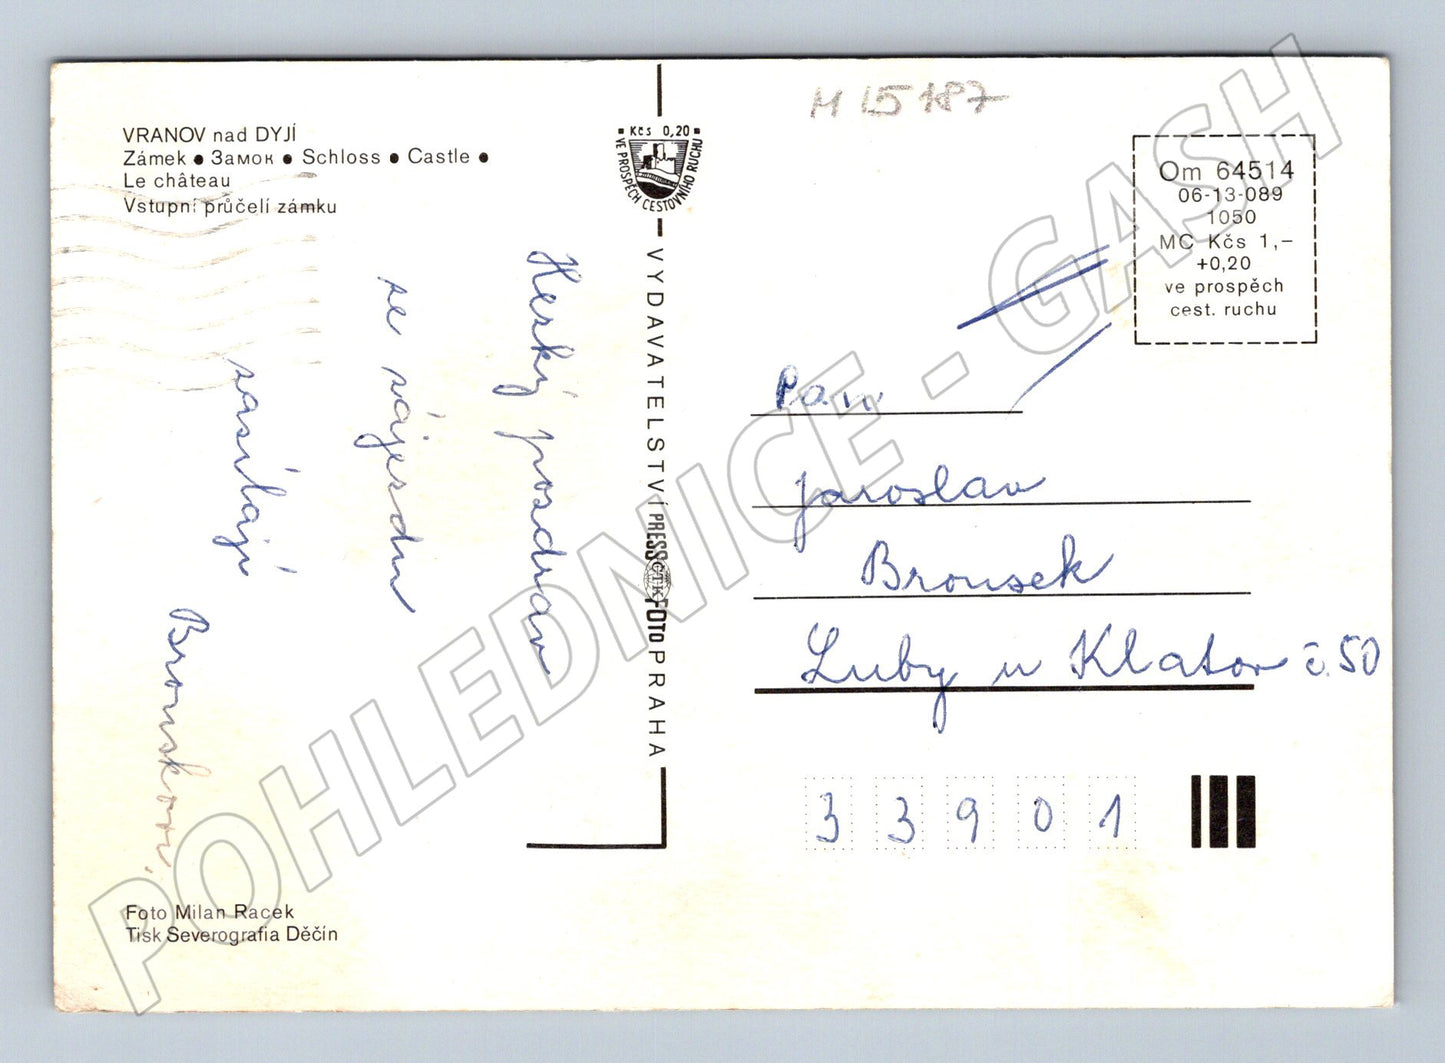 VRANOV nad DYJÍ
Zámek ● Замок ● Schloss ● Castle ●
Le château
Vstupní průčelí zámku
Hezký pozdrav
ze zájezdu
zasílají
Brouskovi
Foto Milan Racek
Tisk Severografia Děčín
Kčs 0,20
VE PROSPĚCH CESTOVNÍHO RUCHU
VYDAVATELSTVÍ PRESSFOTO PRAHA
ČTK
M 15187
Om 64514
06-13-089
1050
MC Kčs 1,–
+0,20
ve prospěch
cest. ruchu
Pan
Jaroslav
Brousek
Luby u Klatov č. 50
33901
POHLEDNICE - GASH